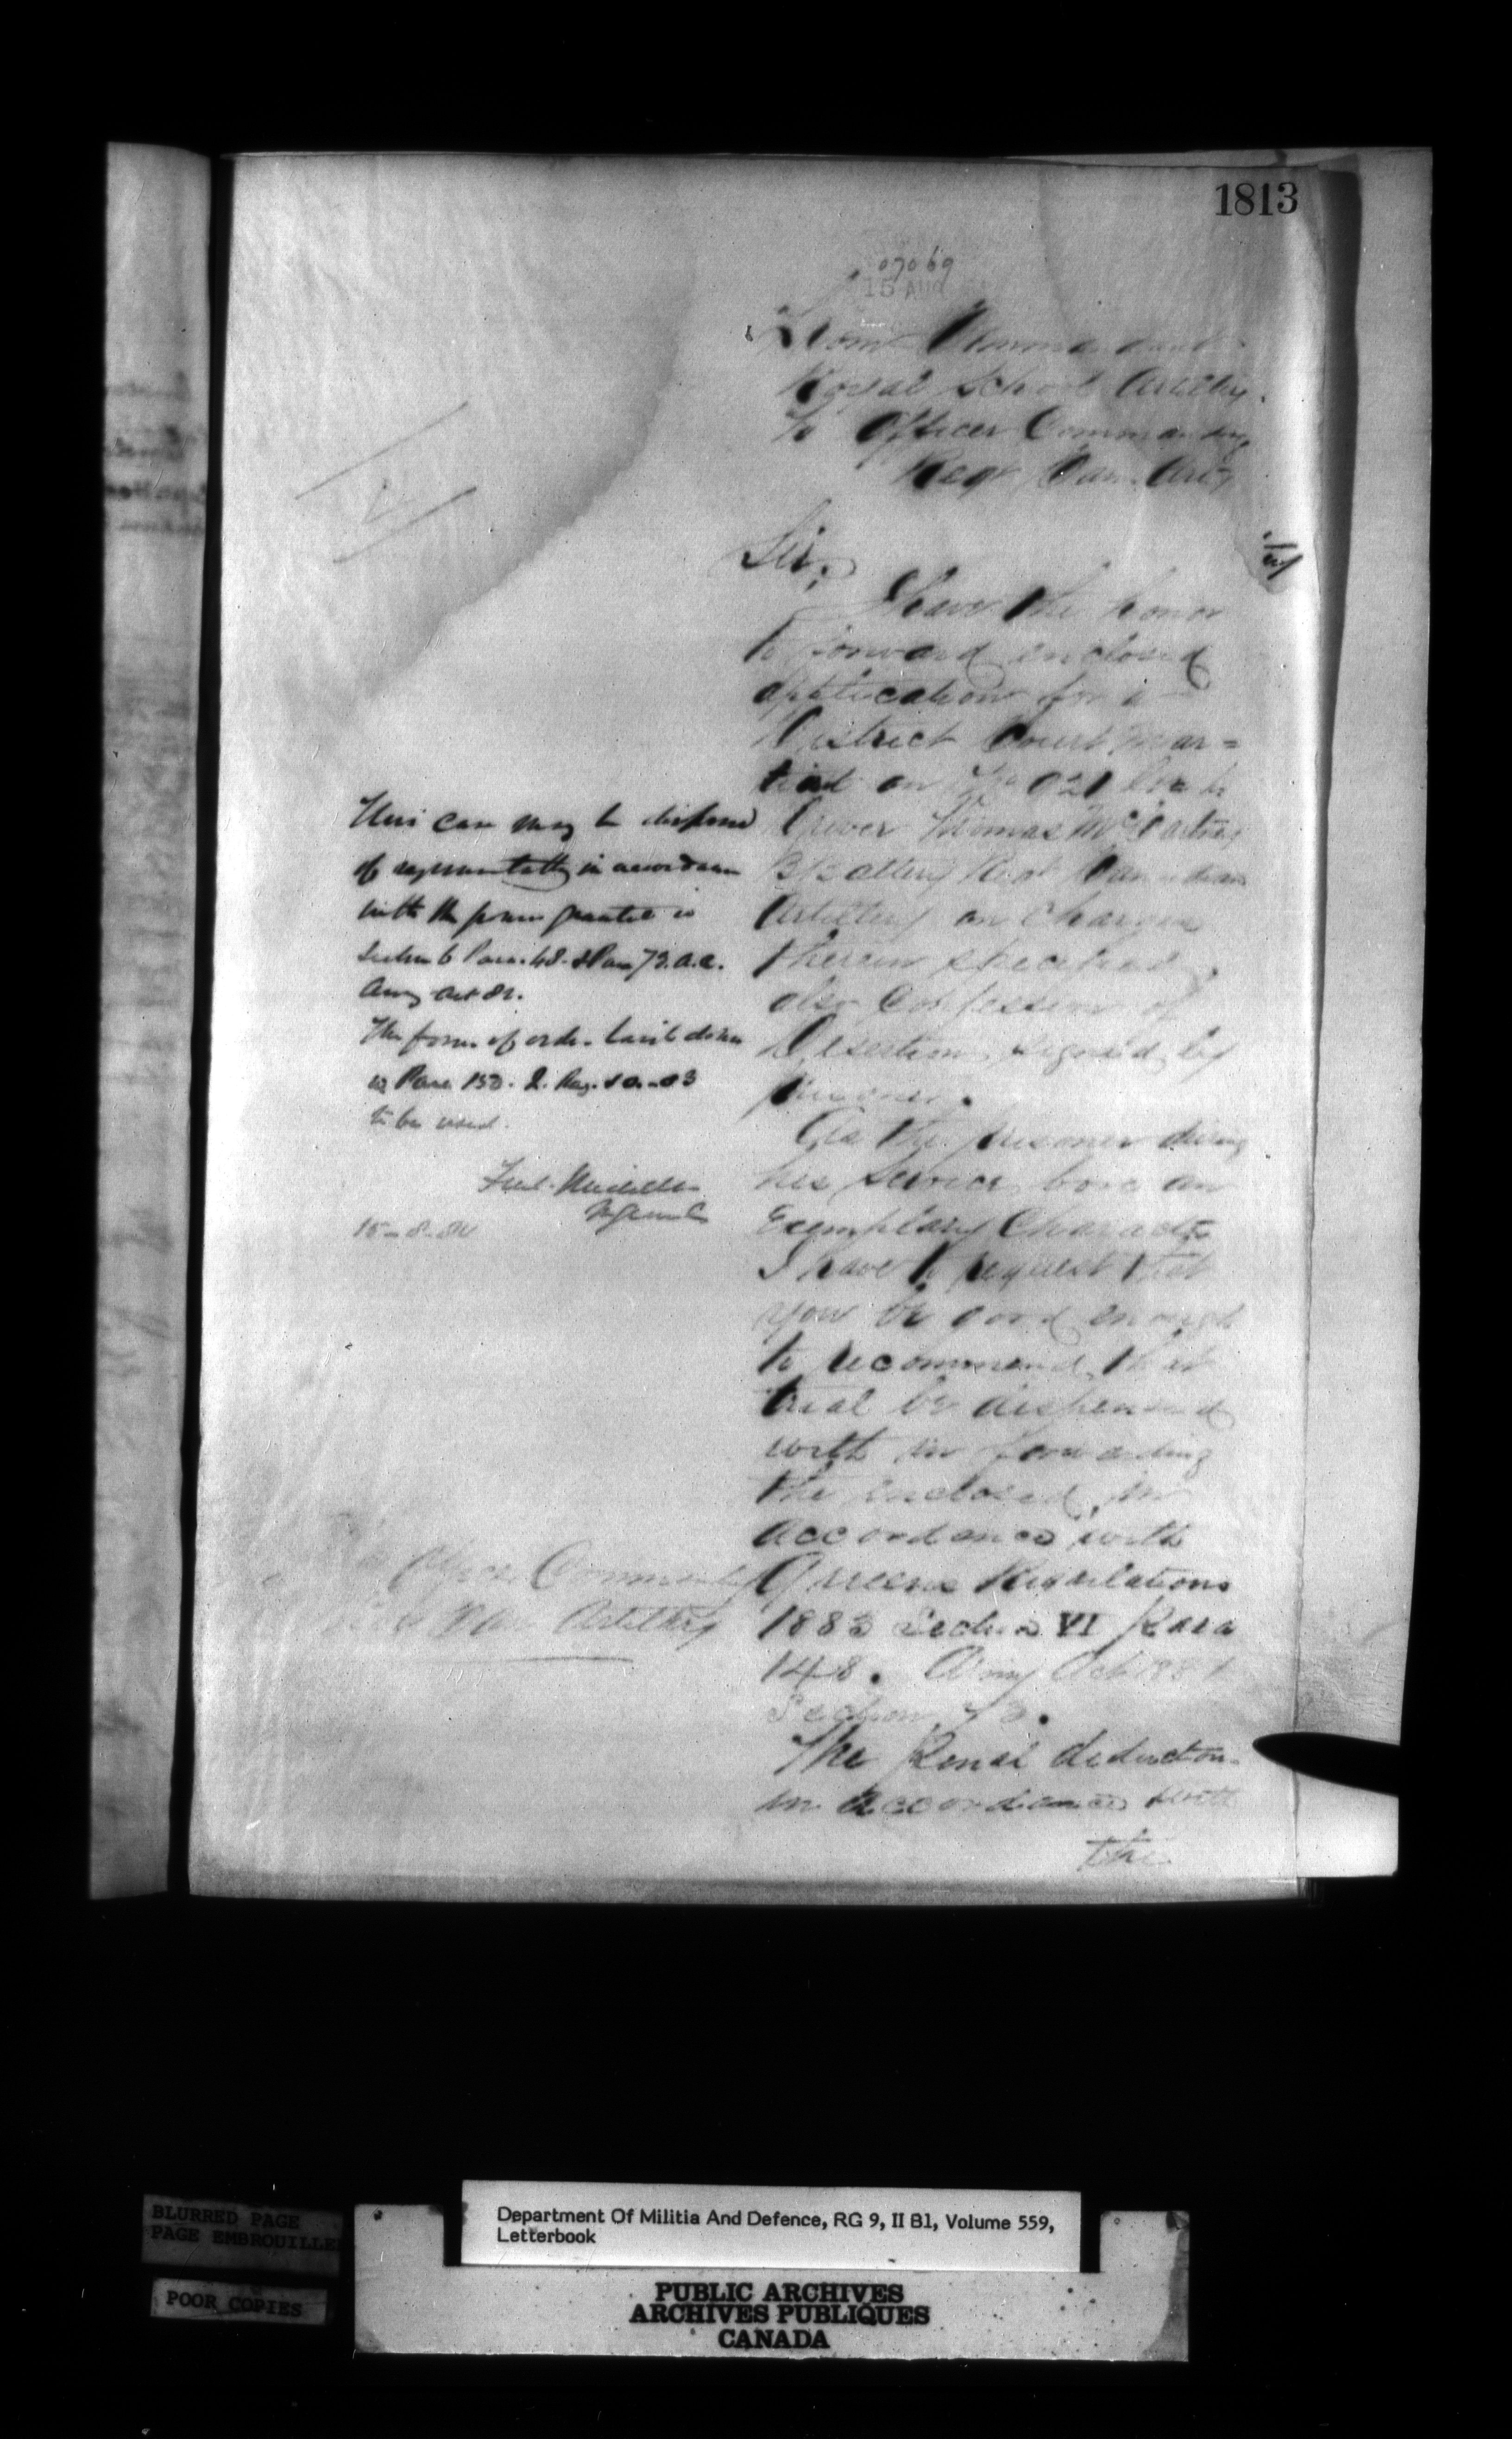 1813
07069
15 AUG
From Commandant
Royal School Artillery.
To Officer Commanding
Regt Can. Arty
Sir,
I have the honor
to forward enclosed
application for a
District Court Mar=
tial on No 021
Driver Thomas McCartney
B Battery Regt Canadian
Artillery on charges
therein specified,
also Confession of
Desertion signed by
prisoner.
As the prisoner during
his service bore an
Exemplary Character
I have to request that
you be good enough
to recommend that
trial be dispensed
with in forwarding
the enclosed in
accordance with
Queens Regulations
1883 Section VI Para
148. Army Act 1881
Section 73.
The Penal deductions
in accordance with
the
This case may be disposed
of regimentally in accordance
with the power granted in
Section 6 Para. 148. & Para 73. A.A.
Army Act 81.
The form of order laid down
in Para 150. Q. Reg.
to be used.
Fred. Middleton
M General
15-8-84
Officer Commanding
Artillery
Department Of Militia And Defence, RG 9, II B1, Volume 559,
Letterbook
BLURRED PAGE
PAGE EMBROUILLEE
POOR COPIES
PUBLIC ARCHIVES
ARCHIVES PUBLIQUES
CANADA